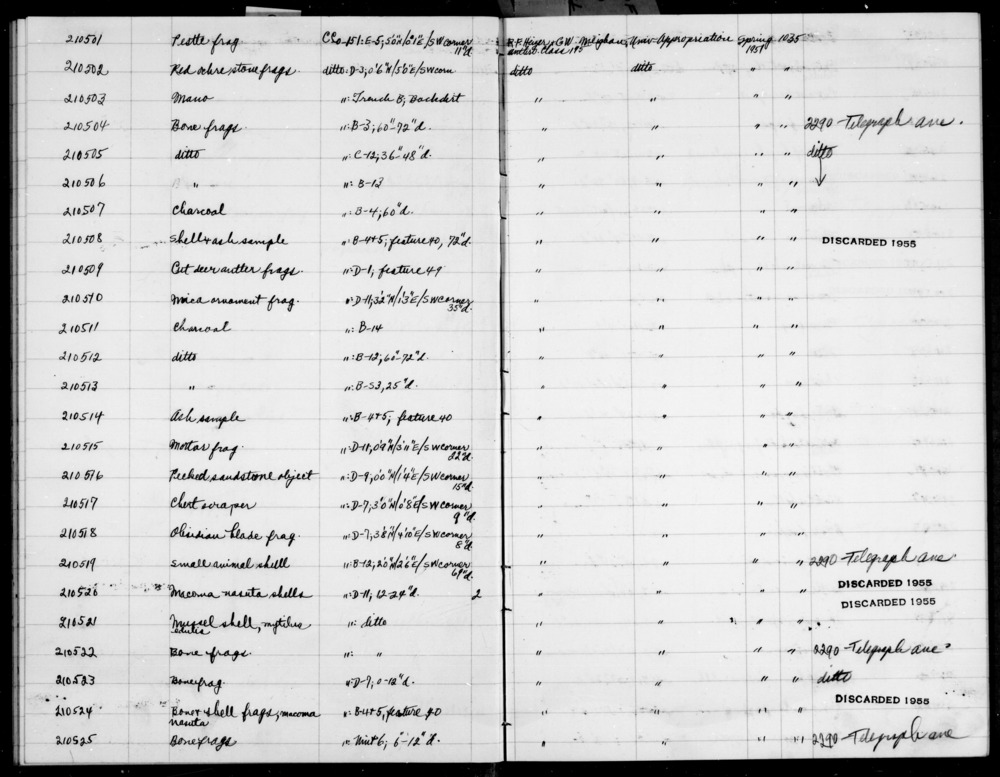 210501 Pestle frag CCo-151: E-5; 5'0"N/0'1"E/SW corner 11"d. R.F. Heizer, C.W. Meighan, Univ. Appropriation Spring 1035
anthro. class 195 1951
210502 Red ochre, stone frags. ditto: D-3; 0'6"N/5'0"E/SW corn ditto ditto " "
210503 Mano ": Trench B; Backdirt " " " "
210504 Bone frags. ": B-3; 60"-72"d. " " " " 2290 - Telegraph ave.
210505 ditto ": C-12; 36"-48"d. " " " " ditto
210506 " ": B-13 " " " "
210507 Charcoal ": B-4; 60"d. " " " "
210508 Shell & ash sample ": B-4+5; feature 40, 72"d. " " " " DISCARDED 1955
210509 Cut deer antler frags. ": D-1; feature 49 " " " "
210510 Mica ornament frag. ": D-11; 3'2"N/1'3"E/SW corner 35"d. " " " "
210511 Charcoal ": B-14 " " " "
210512 ditto ": B-12; 60"-72"d. " " " "
210513 " ": B-53, 25"d. " " " "
210514 Ash sample ": B-4+5; feature 40 " " " "
210515 Mortar frag. ": D-11; 0'9"N/3'11"E/SW corner 22"d. " " " "
210516 Pecked sandstone object ": D-9; 0'0"N/1'4"E/SW corner 15"d. " " " "
210517 Chert scraper ": D-7; 3'0"N/0'8"E/SW corner 9"d. " " " "
210518 Obsidian blade frag. ": D-7; 3'8"N/4'10"E/SW corner 8"d. " " " "
210519 Small animal skull ": B-12; 2'0"N/2'6"E/SW corner 69"d. " " " " 2290 - Telegraph ave.
210520 Macoma nasuta shells ": D-11; 12-24"d. 2 " " " " DISCARDED 1955
DISCARDED 1955
210521 Mussel shell, mytilus edulis ": ditto " " " "
210522 Bone frags. ": " " " " " 2290 - Telegraph ave.
210523 Bone frag. ": D-7; 0-12"d. " " " " ditto
DISCARDED 1955
210524 Bone & shell frags; macoma nasuta ": B-4+5; feature 40 " " " "
210525 Bone frags ": Unit 6; 6"-12"d. " " " " 2290 - Telegraph ave